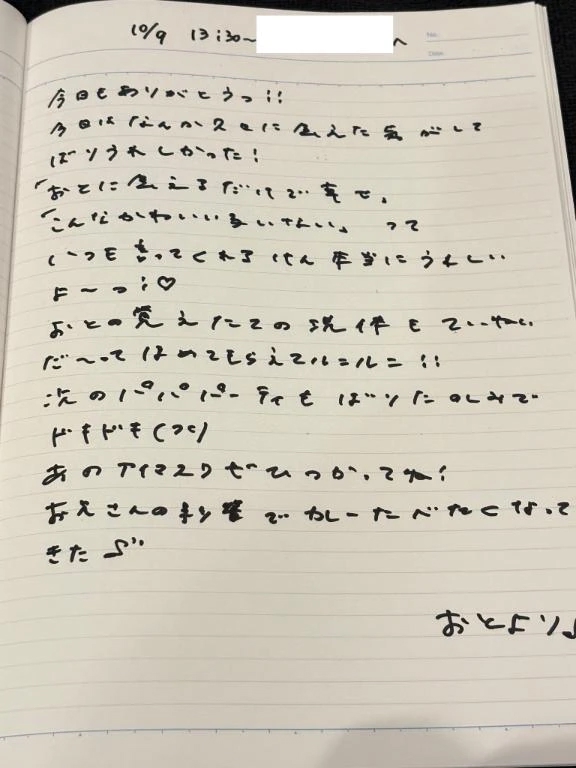 10/9 13:30~ へ
No.
Date
今日もありがとうっ!!
今日はなんか久々に会えた気がして
ばりうれしかった!
「おとに会えるだけで幸せ」
「こんなかわいい子いない」って
いつも言ってくれるけん本当にうれしい
よ〜っ!♡
おとの覚えたての洗体もていねい
だ〜ってほめてもらえてルンルン!!
次のパパパーティもばりたのしみで
ドキドキ
あのアイマスクぜひつかってね!
お兄さんの影響でカレーたべたくなって
きた
おとより♪